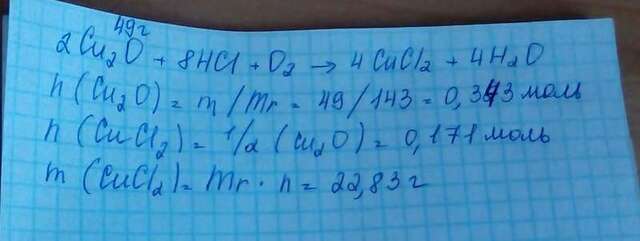 49г
2Cu₂O + 8HCl + O₂ → 4CuCl₂ + 4H₂O
n (Cu₂O) = m / Mr = 49 / 143 = 0,343 моль
n (CuCl₂) = 1/2 (Cu₂O) = 0,171 моль
m (CuCl₂) = Mr · n = 22,83 г